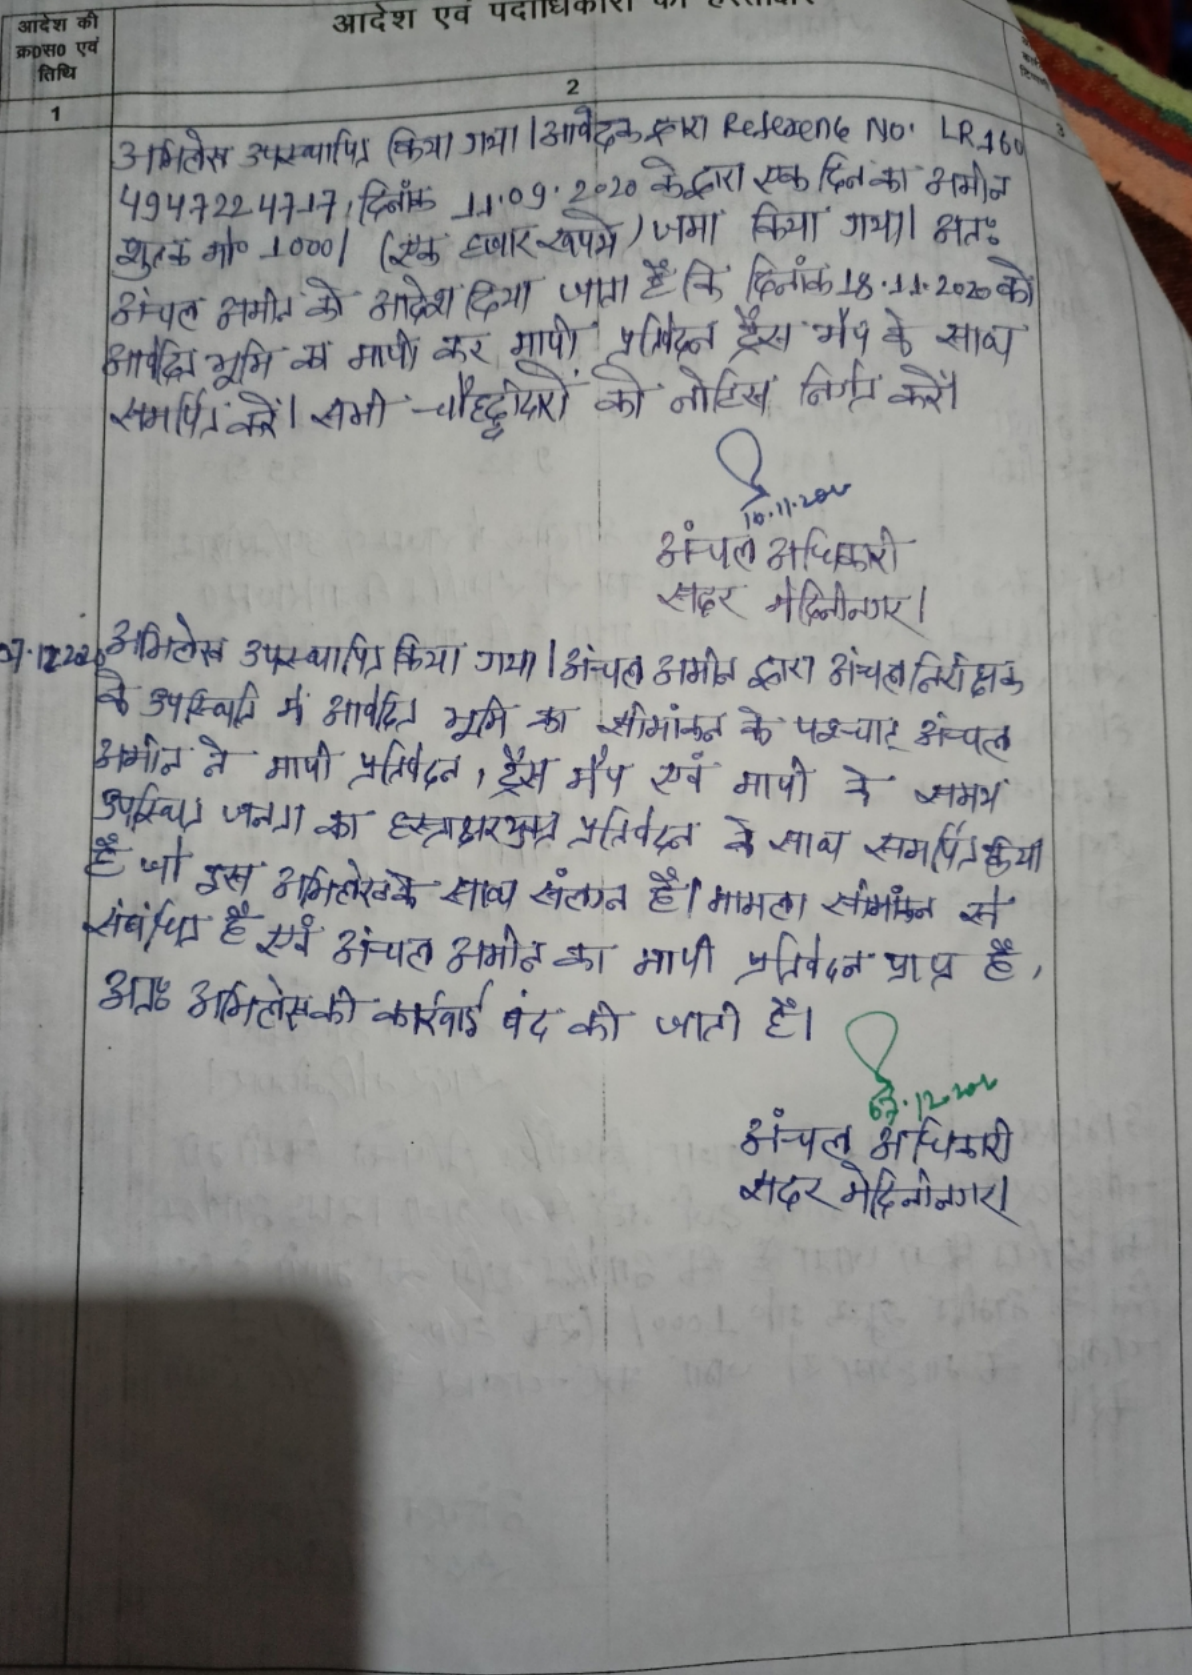 आदेश एवं पदाधिकारी का हस्ताक्षर
आदेश की
क्र०स० एवं
तिथि
1
2
3
अभिलेख उपस्थापित किया गया। आवेदक द्वारा Reference No. LR160
4947224717, दिनांक 11.09.2020 के द्वारा एक दिन का अमीन
शुल्क मो० 1000/ (एक हजार रूपये) जमा किया गया। अतः
अंचल अमीन को आदेश दिया जाता है कि दिनांक 18.11.2020 को
आवेदित भूमि का मापी कर मापी प्रतिवेदन ट्रेस मैप के साथ
समर्पित करें। सभी चौहद्दीदारों को नोटिस निर्गत करें।
10.11.2020
अंचल अधिकारी
सदर मेदिनीनगर।
07.12.2020
अभिलेख उपस्थापित किया गया। अंचल अमीन द्वारा अंचल निरीक्षक
के उपस्थिति में आवेदित भूमि का सीमांकन के पश्चात् अंचल
अमीन ने मापी प्रतिवेदन, ट्रेस मैप एवं मापी के समय
उपस्थित जनता का हस्ताक्षरयुक्त प्रतिवेदन के साथ समर्पित किया
है जो इस अभिलेख के साथ संलग्न है। मामला सीमांकन से
संबंधित है एवं अंचल अमीन का मापी प्रतिवेदन प्राप्त है,
अतः अभिलेख की कार्रवाई बंद की जाती है।
07.12.2020
अंचल अधिकारी
सदर मेदिनीनगर।